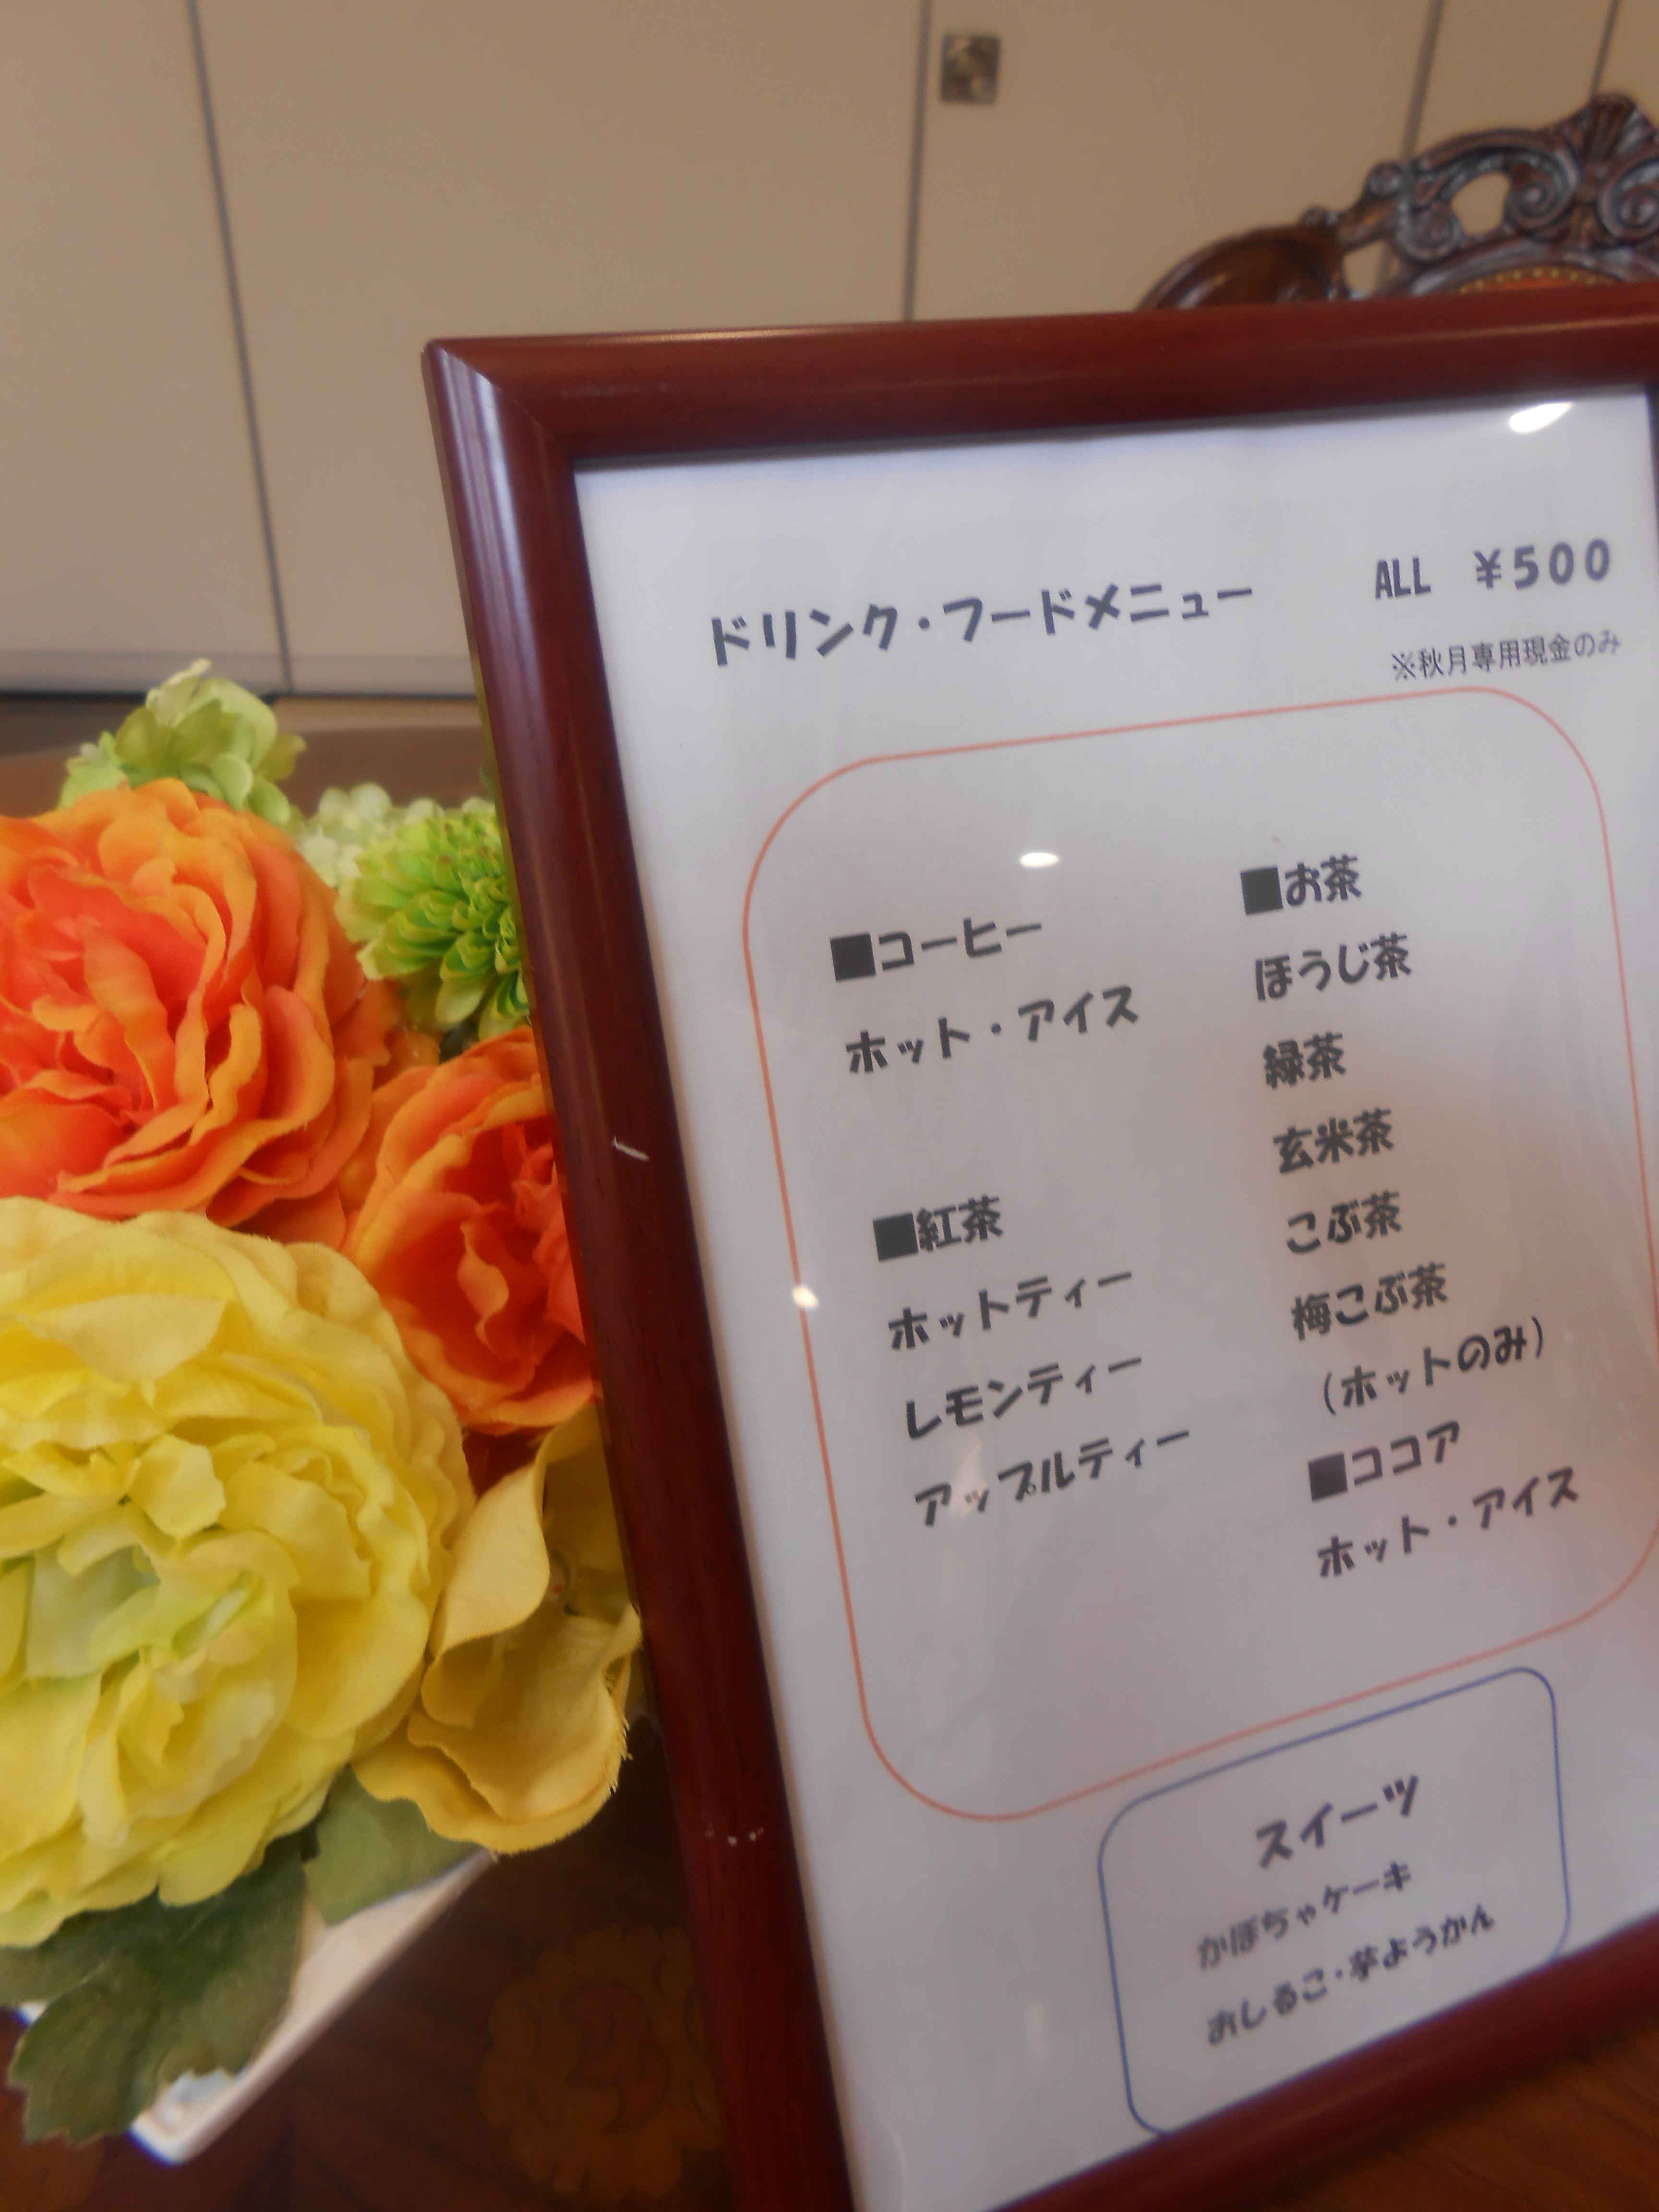 ドリンク・フードメニュー ALL ¥500
※秋月専用現金のみ
■コーヒー
ホット・アイス
■紅茶
ホットティー
レモンティー
アップルティー
■お茶
ほうじ茶
緑茶
玄米茶
こぶ茶
梅こぶ茶
(ホットのみ)
■ココア
ホット・アイス
スイーツ
かぼちゃケーキ
おしるこ・芋ようかん